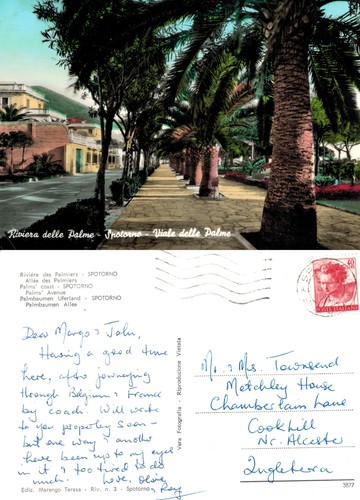 Riviera delle Palme - Spotorno - Viale delle Palme
Rivière des Palmiers - SPOTORNO
Allée des Palmiers
Palms' coast - SPOTORNO
Palms' Avenue
Palmbaumen Uferland - SPOTORNO
Palmbaumen Allee
Dear Margo & John,
Having a good time
here, after journeying
through Belgium & France
by coach. Will write
to you properly soon -
but one way & another
have been up to my eyes
in it, & too tired to do
much. Love, Olive
Roy
Ediz. Marengo Teresa - Riv. n. 3 - Spotorno
Vera Fotografia - Riproduzione Vietata
POSTE ITALIANE
Mr. & Mrs. Townsend
Motchley House
Chamberlain Lane
Cookhill
Nr. Alcester
Ingleterra
3877